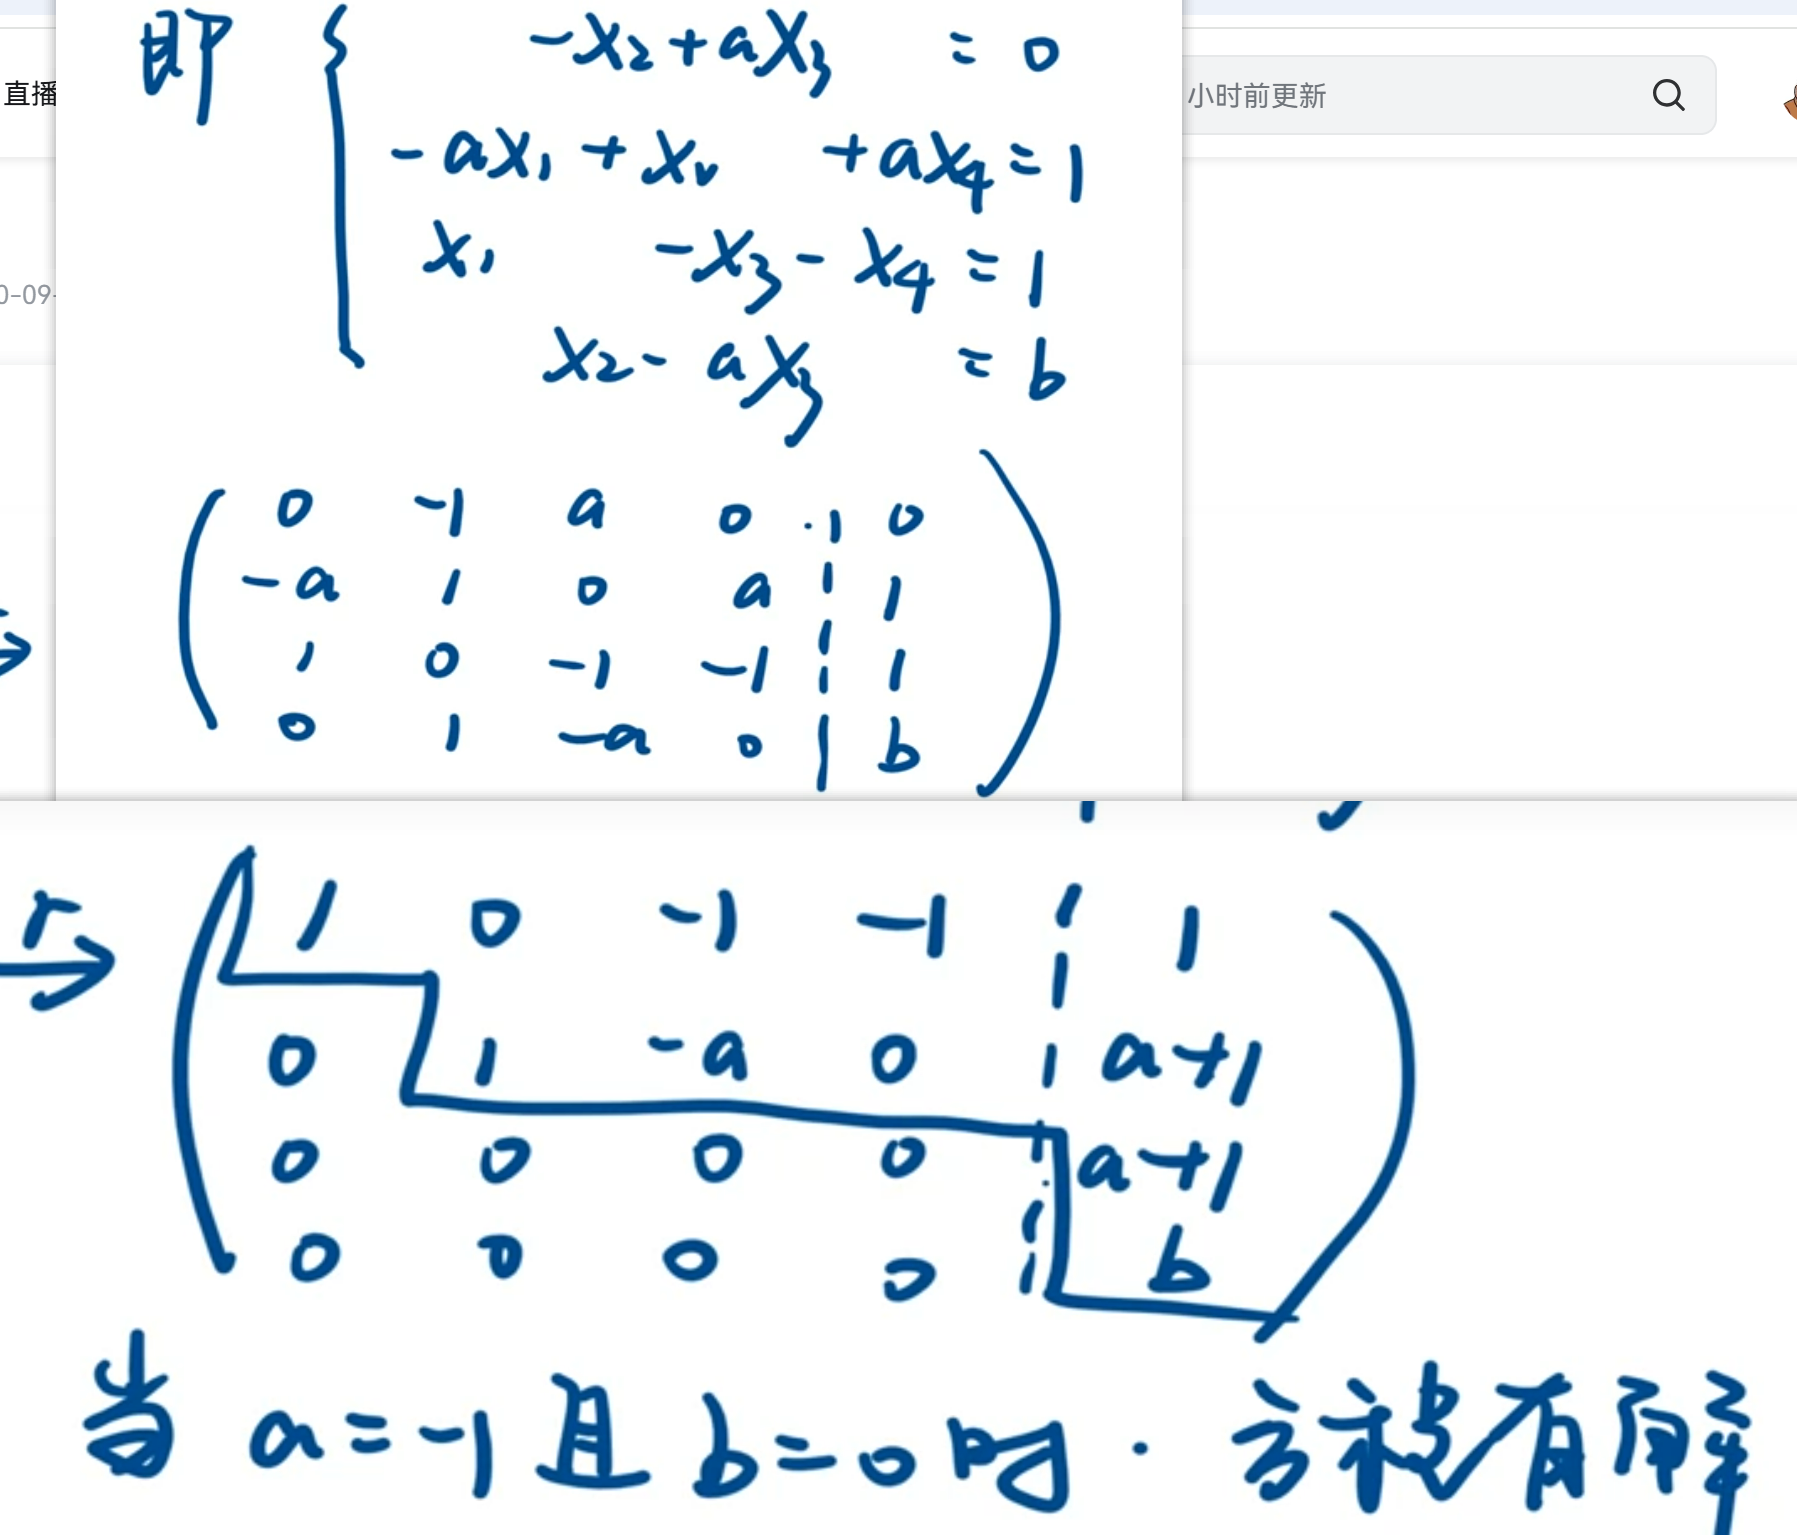 直播
小时前更新
0-09-
即 { -x₂+ax₃ = 0
-ax₁+x₂ +ax₄=1
x₁ -x₃-x₄=1
x₂-ax₃ = b
( 0 -1 a 0 | 0
-a 1 0 a | 1
1 0 -1 -1 | 1
0 1 -a 0 | b )
r→ ( 1 0 -1 -1 | 1
0 1 -a 0 | a+1
0 0 0 0 | a+1
0 0 0 0 | b )
当 a=-1 且 b=0 时. 方程有解